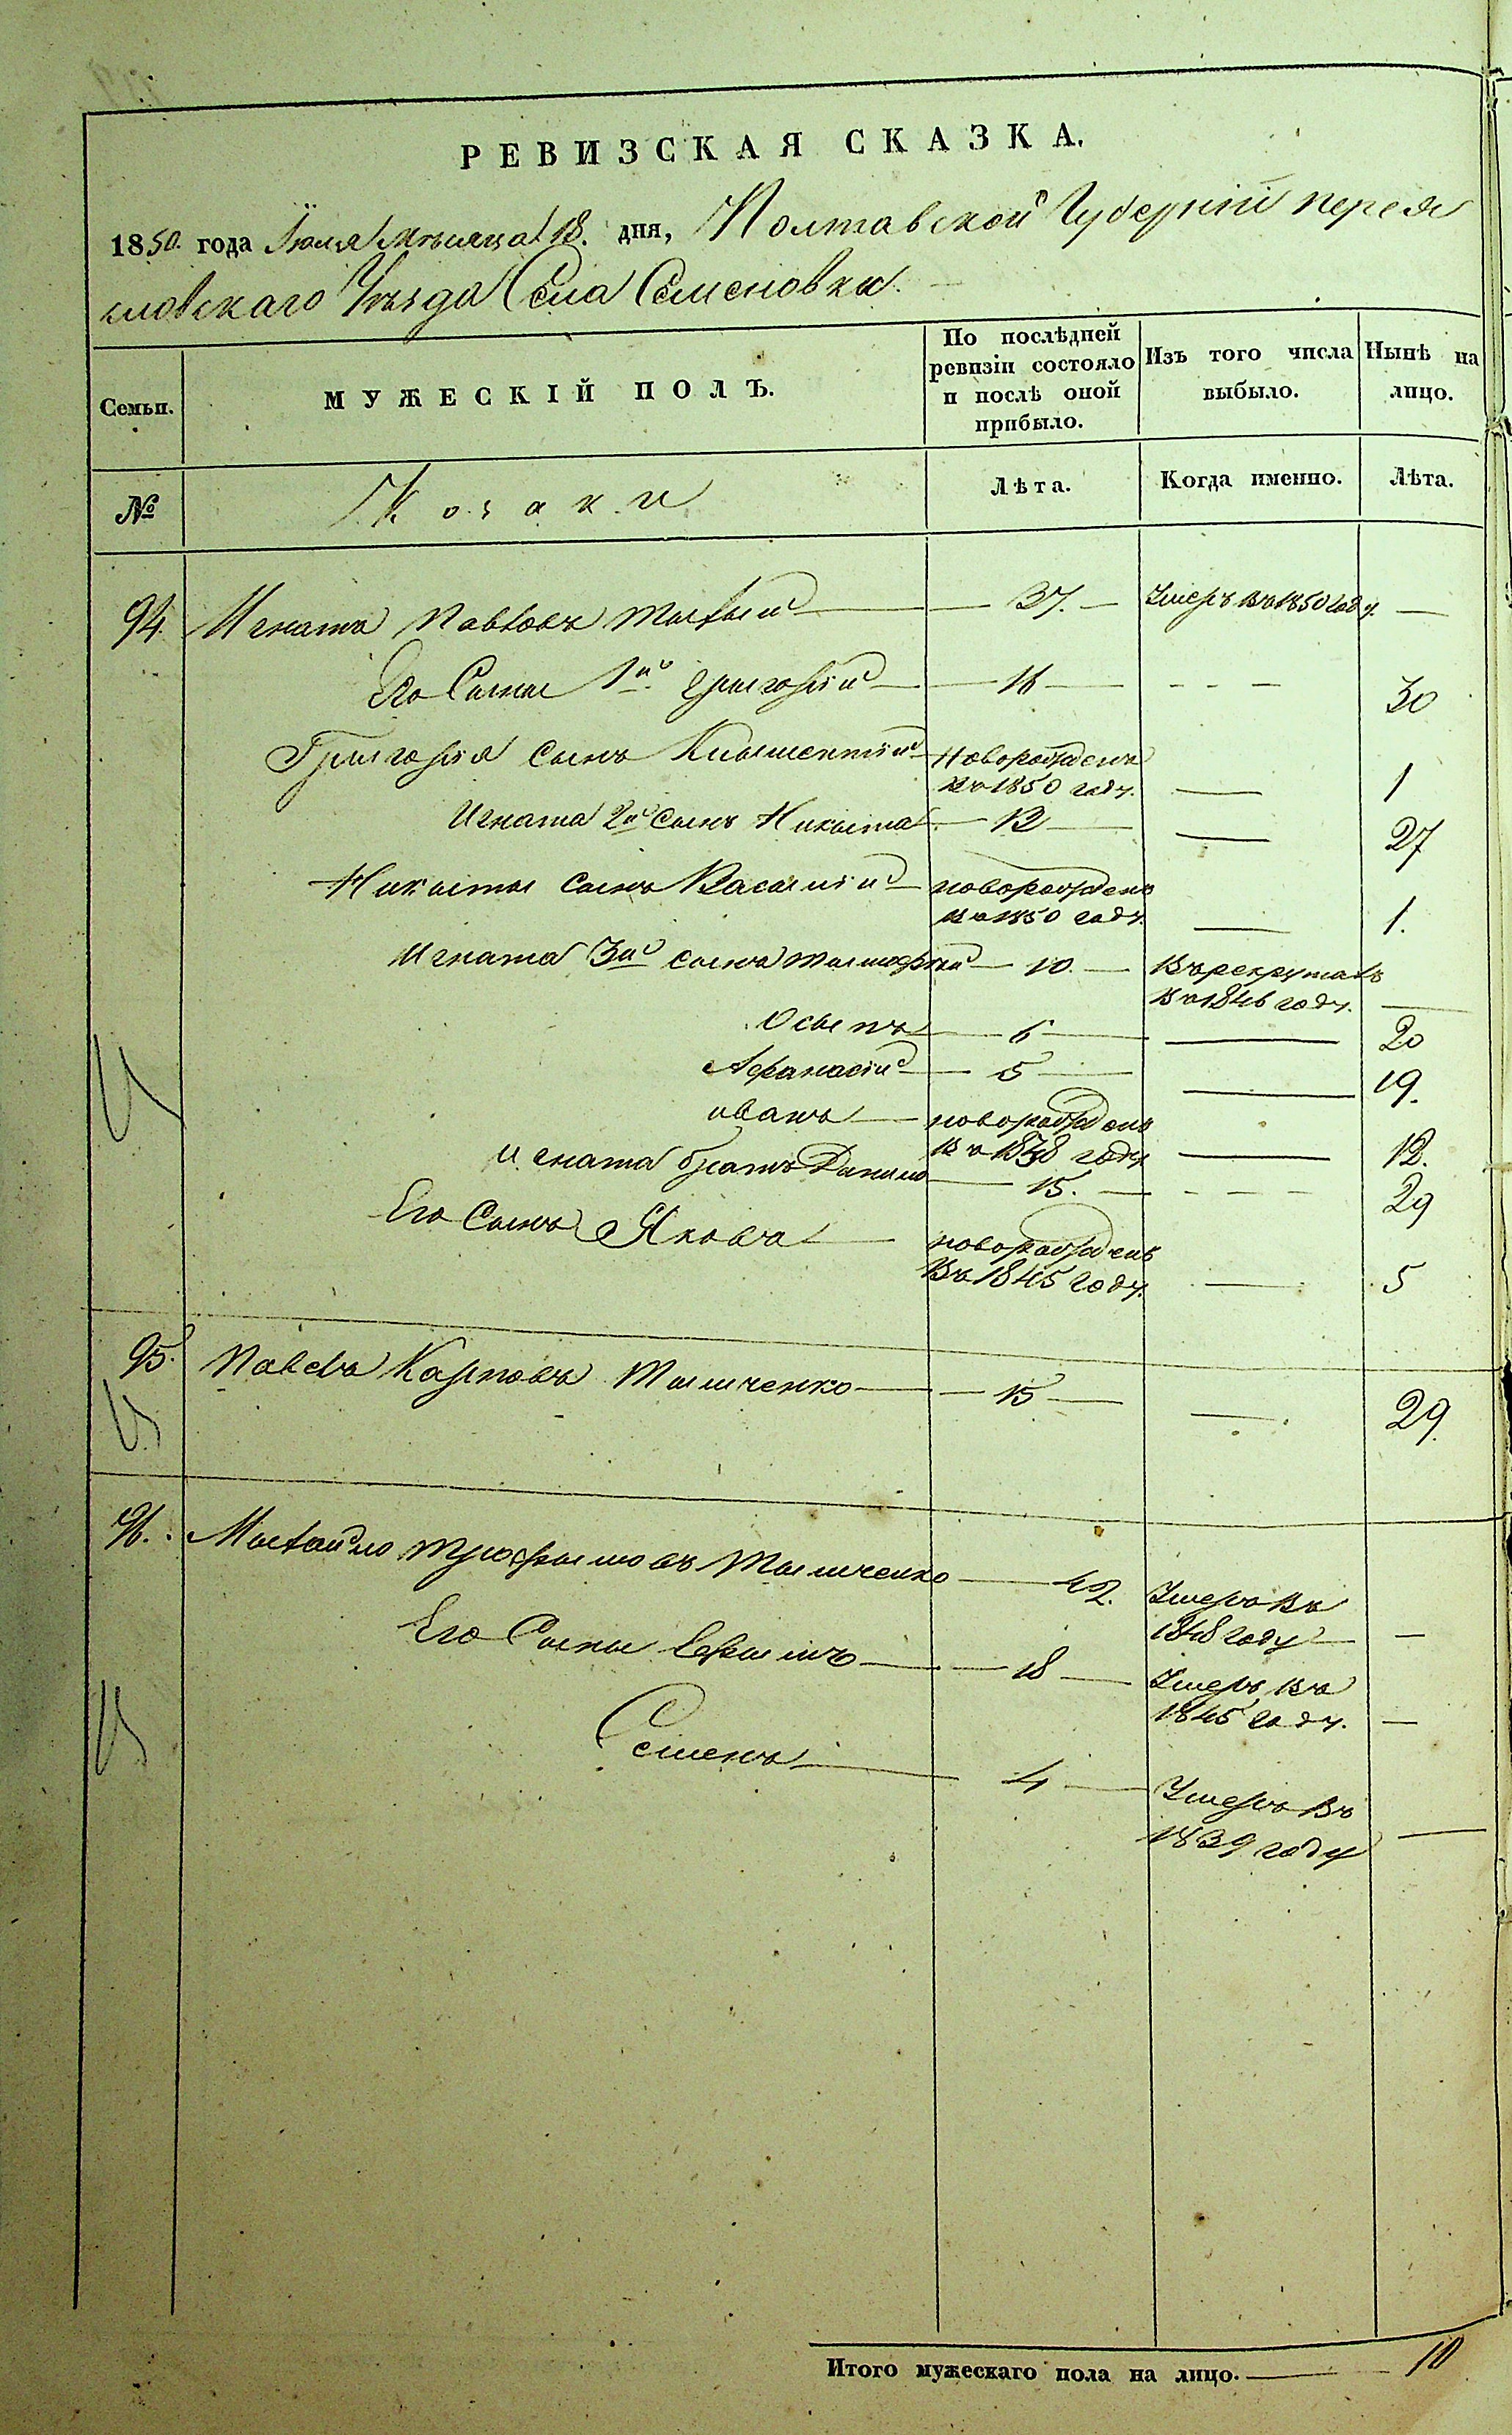 РЕВИЗСКАЯ СКАЗКА.
1850. года Іюля Мѣсяца 18. дня, Полтавской Губерніи перея
словскаго Уѣзда Села Семеновки.
Семьи. МУЖЕСКІЙ ПОЛЪ. По послѣдней ревизіи состояло и послѣ оной прибыло. Изъ того числа выбыло. Нынѣ на лицо.
№ Козаки Лѣта. Когда именно. Лѣта.
94. Игнатъ Павловъ 37. Умеръ въ 1850 году. —
Его Сыны 1й Григорій — 16 — - - - 30
Григорія сынъ Новорожденъ
въ 1850 году. — 1
Игната 2й сынъ Никыта — 12 — — 27
Никыты сынъ Васылій новорожденъ
въ 1850 году. — 1.
Игната 3й сынъ Тымофей — 10. — Въ рекрутахъ
въ 1846 году. —
Осыпъ — 6 — — 20
Афанасій — 5 — — 19.
иванъ — новорожденъ
въ 1838 году — 12.
игната братъ Данило — 15. — - - - 29
Его Сынъ Яковъ — новорожденъ
Въ 1845 году. — 5
95. Павелъ Карповъ Тымченко — 15 — — 29.
96. Мыхайло Трофымовъ Тымченко — 42. Умеръ въ
1848 году —
Его Сыны Ефымъ — 18 — Умеръ въ
1845 году. —
Семенъ — 4 — Умеръ въ
1839 году —
Итого мужескаго пола на лицо. — 10